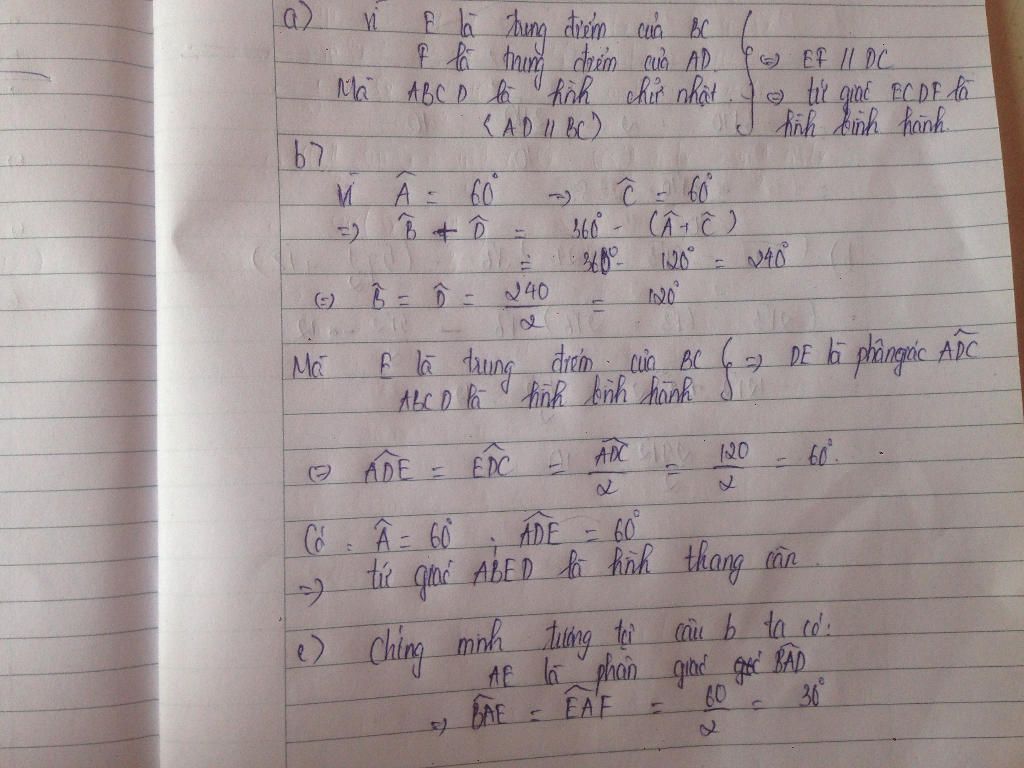 a) Vì E là trung điểm của BC
F là trung điểm của AD. } => EF // DC
Mà ABCD là hình chữ nhật. => tứ giác ECDF là
(AD // BC) hình bình hành.
b)
Vì Â = 60° => Ĉ = 60°
=> B̂ + D̂ = 360° - (Â + Ĉ)
= 360° - 120° = 240°
(=) B̂ = D̂ = 240/2 = 120°
Mà E là trung điểm của BC } => DE là phân giác ADC
ABCD là hình bình hành
(=) ADE = EDC = ADC/2 = 120/2 = 60°.
Có : Â = 60° ; ADE = 60°
=> tứ giác ABED là hình thang cân.
c) Chứng minh tương tự câu b ta có:
AE là phân giác góc BAD
=> BAE = EAF = 60/2 = 30°